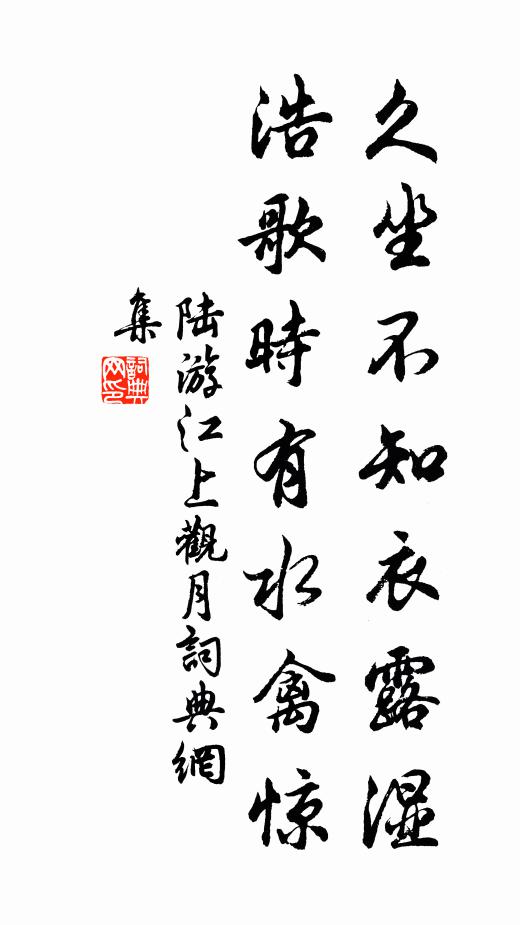 久坐不知衣露湿
浩歌時有水禽惊
陆游江上觀月詞典網
集
詞典网印